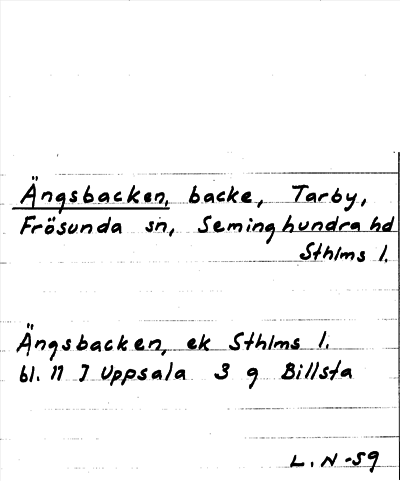 Ängsbacken, backe, Tarby,
Frösunda sn, Seminghundra hd
Sthlms l.
Ängsbacken, ek Sthlms l.
bl. 11 I Uppsala 3 g Billsta
L. N -59